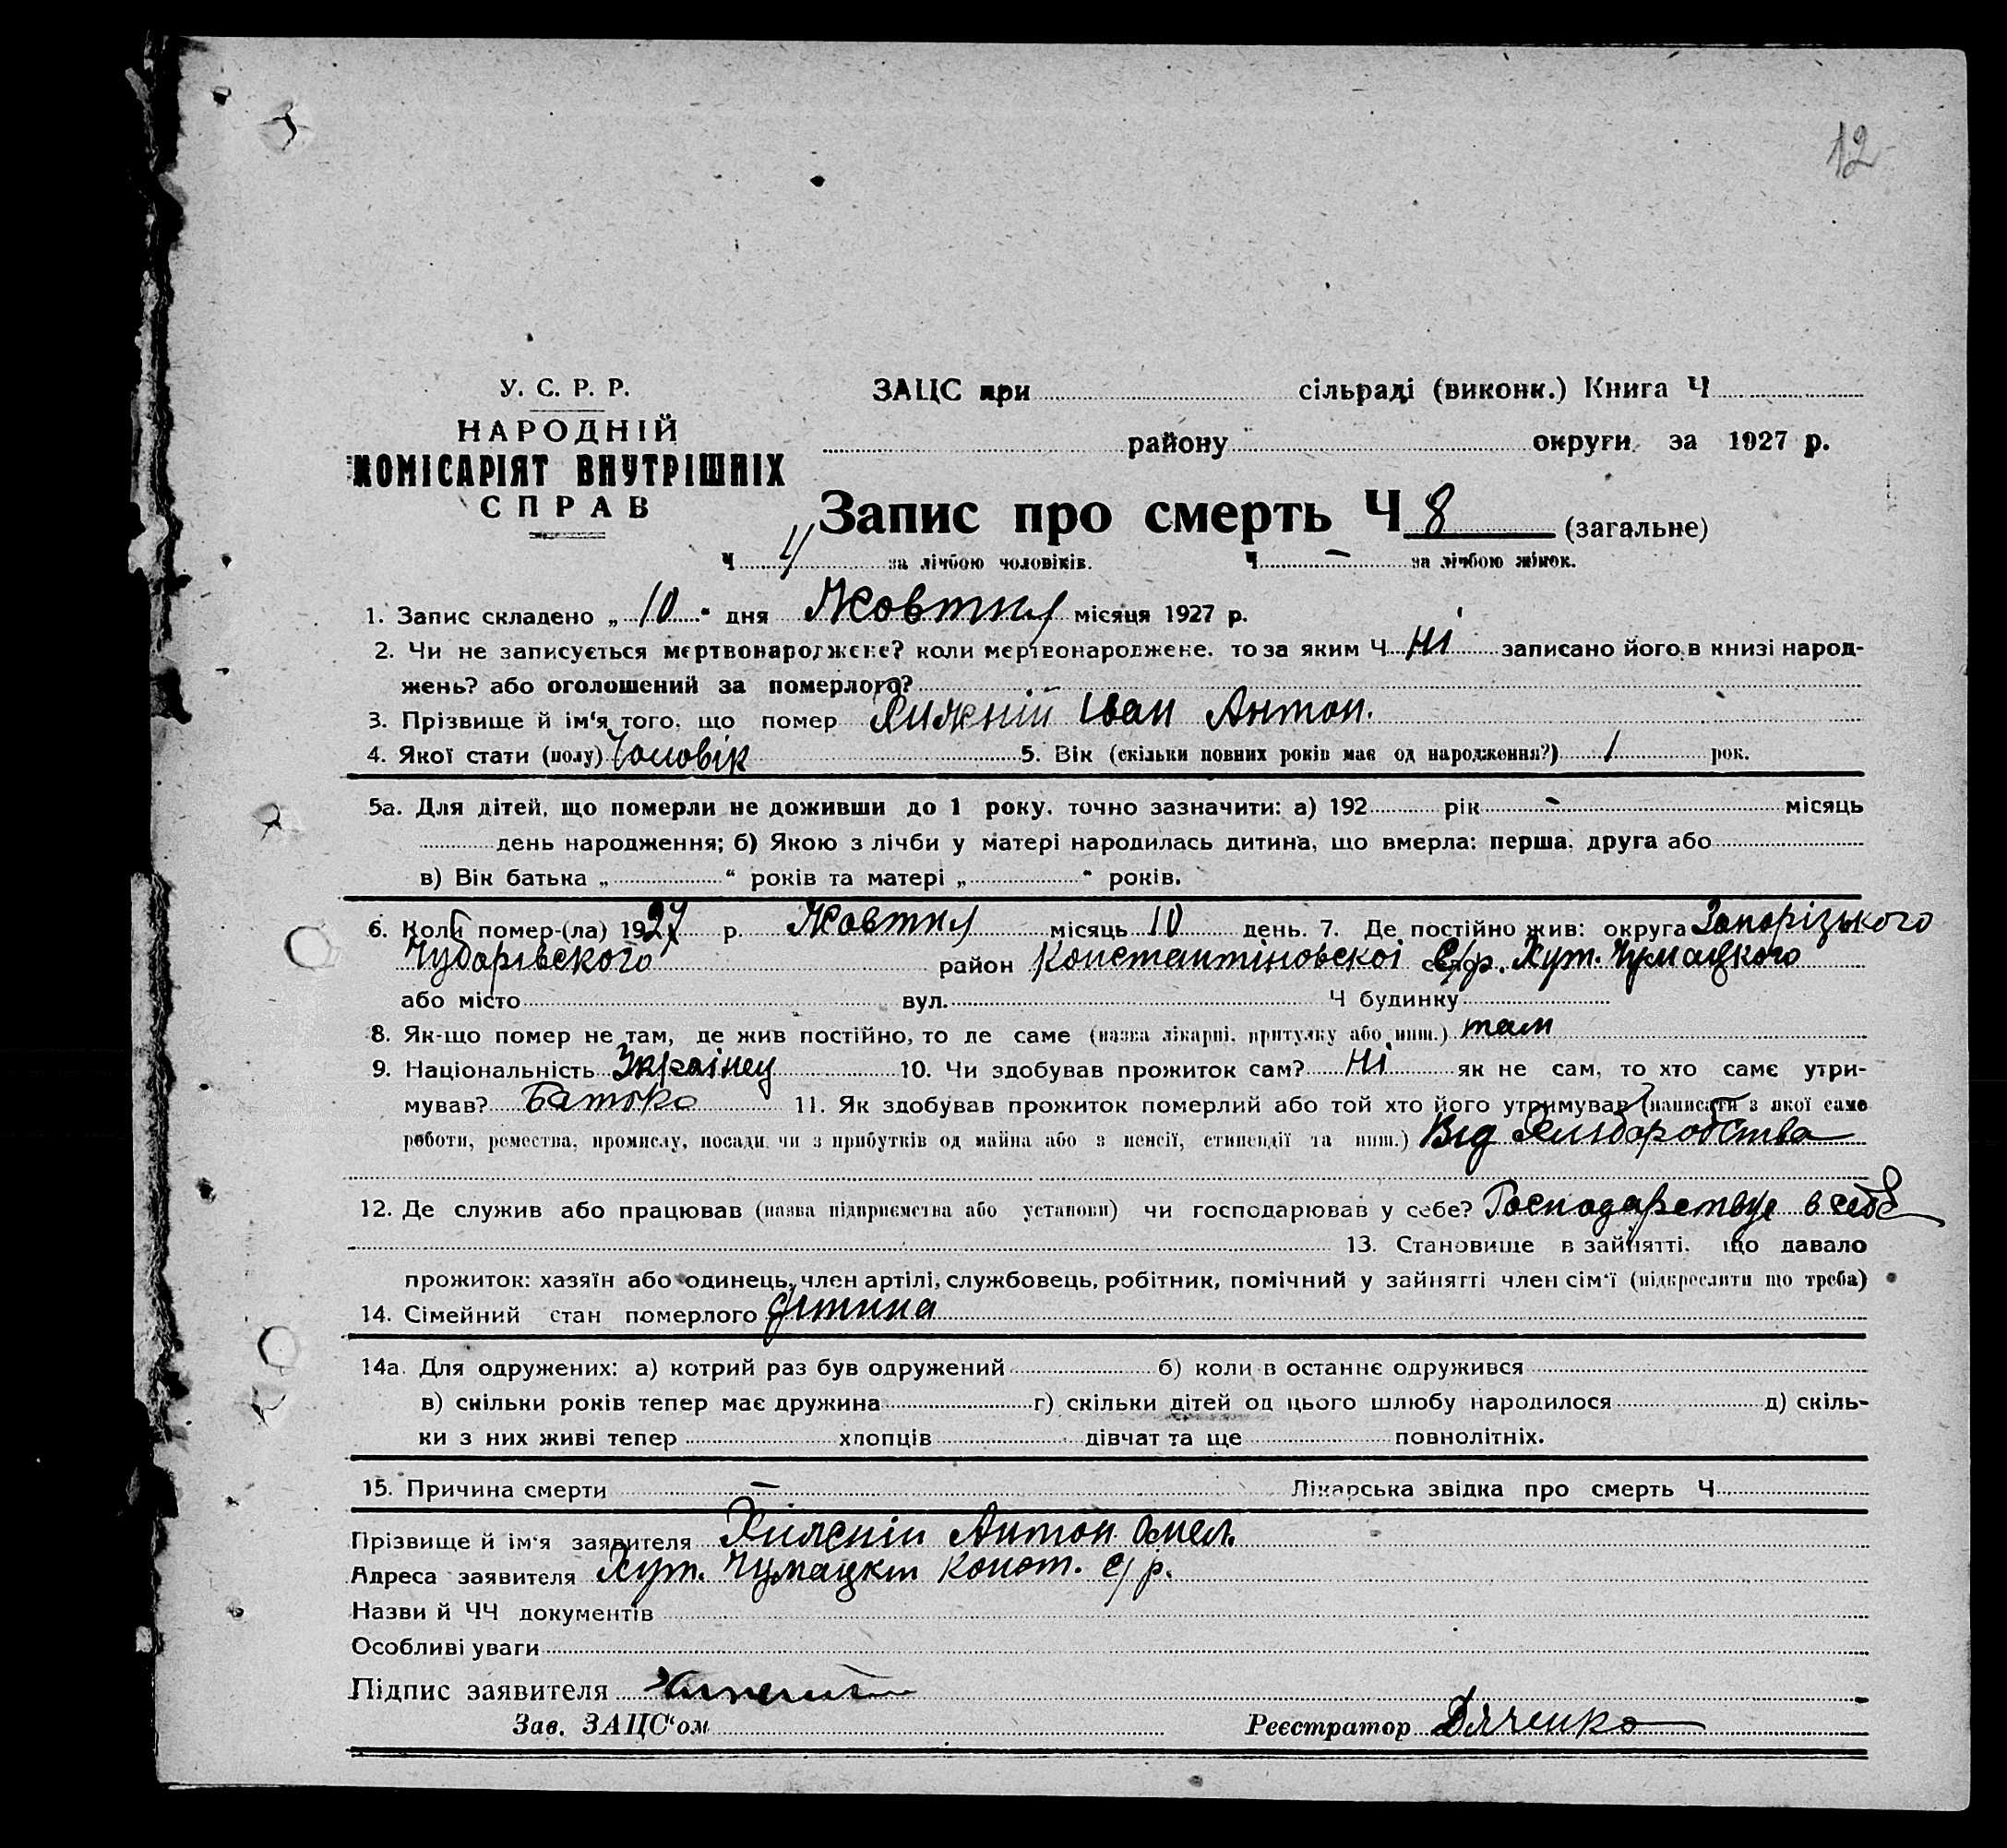 12
У. С. Р. Р.
НАРОДНІЙ
КОМІСАРІЯТ ВНУТРІШНІХ
СПРАВ
ЗАЦС при сільраді (виконк.) Книга Ч
району округи за 1927 р.
Запис про смерть Ч 8 (загальне)
Ч 4 за лічбою чоловіків. Ч – за лічбою жінок.
1. Запис складено „ 10 " дня Жовтня місяця 1927 р.
2. Чи не записується мертвонароджене? коли мертвонароджене, то за яким Ч Ні записано його в книзі народ-
жень? або оголошений за померлого?
3. Прізвище й ім'я того, що помер Хижній Іван Антон.
4. Якої стати (полу) Чоловік 5. Вік (скільки повних років має од народження?) 1 рок.
5а. Для дітей, що померли не доживши до 1 року, точно зазначити: а) 192 рік - місяць
день народження; б) Якою з лічби у матері народилась дитина, що вмерла: перша, друга або
в) Вік батька „ " років та матері „ " років.
6. Коли помер-(ла) 1927 р. Жовтня місяць 10 день. 7. Де постійно жив: округа Запорізького
Чубарівського район Константіновскої с/р. Хут. Чумацкого
або місто вул. Ч будинку
8. Як-що помер не там, де жив постійно, то де саме (назва лікарні, притулку або инш.) там
9. Національність Україней 10. Чи здобував прожиток сам? Ні як не сам, то хто саме утри-
мував? Батько 11. Як здобував прожиток померлий або той хто його утримував (написати з якої саме
роботи, ремества, промислу, посади чи з прибутків од майна або з пенсії, стипендії та инш.) Від Хліборобства
12. Де служив або працював (назва підприємства або установи) чи господарював у себе? Господарствує в себе
13. Становище в зайнятті, що давало
прожиток: хазяїн або одинець, член артілі, службовець, робітник, помічний у зайнятті член сім'ї (підкреслити що треба)
14. Сімейний стан померлого дітина
14а. Для одружених: а) котрий раз був одружений б) коли в останнє одружився
в) скільки років тепер має дружина г) скільки дітей од цього шлюбу народилося д) скіль-
ки з них живі тепер хлопців дівчат та ще повнолітніх.
15. Причина смерти – Лікарська звідка про смерть Ч
Прізвище й ім'я заявителя Хижній Антон Омел.
Адреса заявителя Хут. Чумацкий Конст. с/р.
Назви й ЧЧ документів
Особливі уваги
Підпис заявителя
Зав. ЗАЦС'ом Реєстратор Дяченко